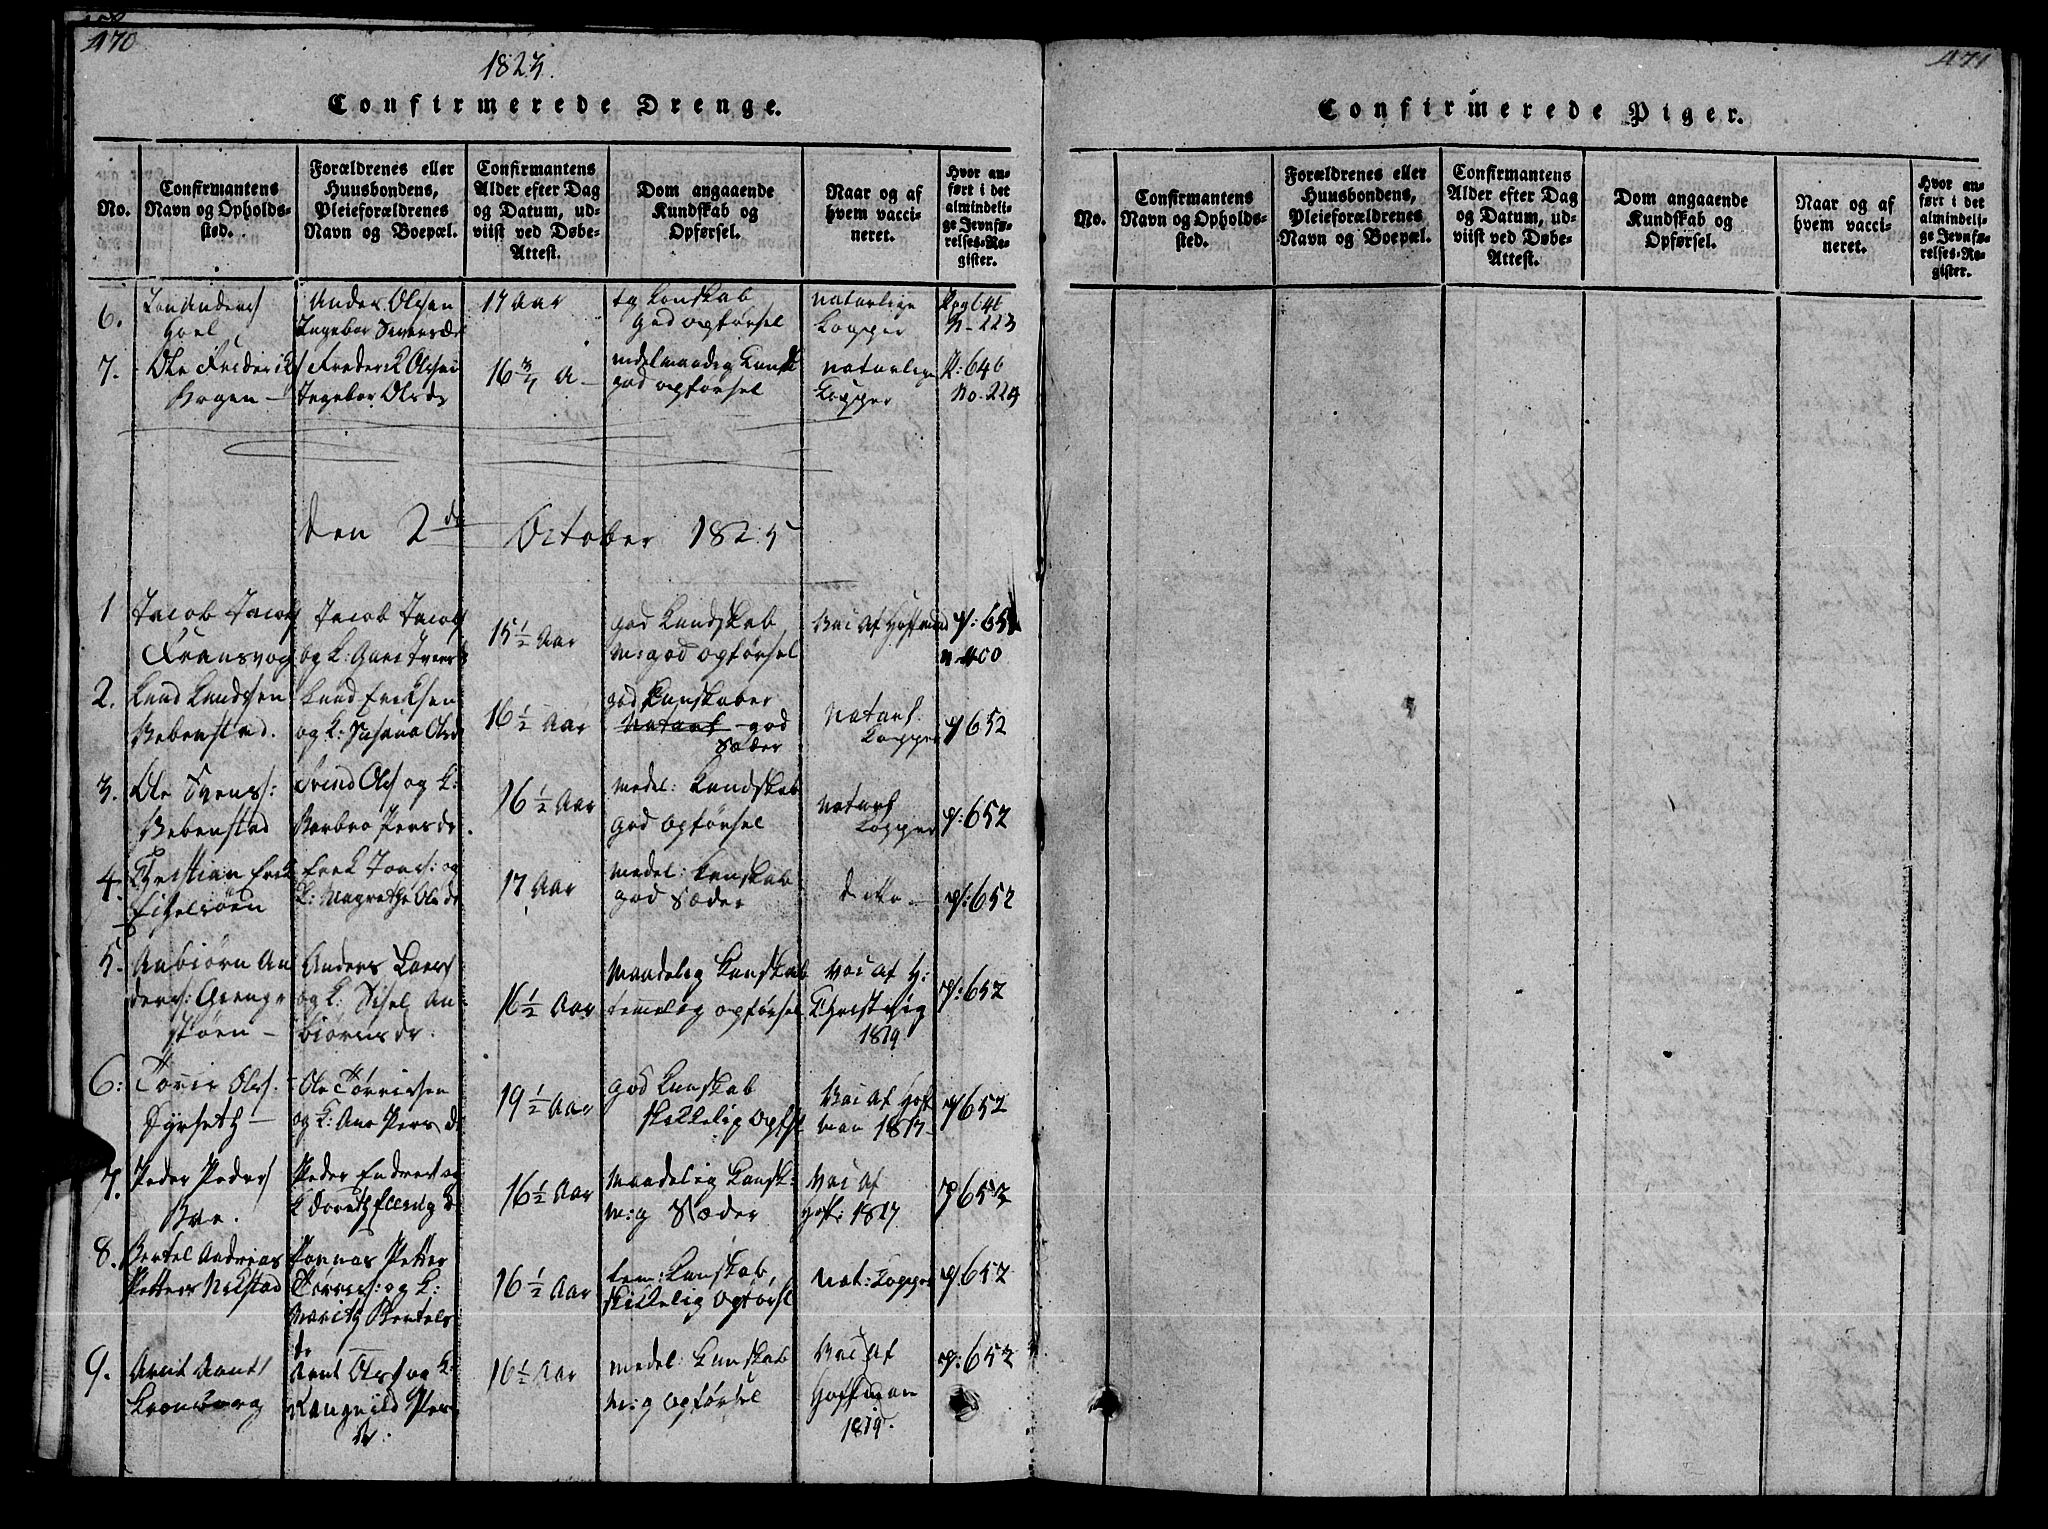 470
1825.
Confirmerede Drenge.
No.
Confirmantens
Navn og Opholds-
sted.
Forældrenes eller
Huusbondens,
Pleieforældrenes
Navn og Boepæl.
Confirmantens
Alder efter Dag
og Datum, ud-
viist ved Døbe-
Attest.
Dom angaaende
Kundskab og
Opførsel.
Naar og af
hvem vacci-
neret.
Hvor an-
ført i det
almindeli-
ge Jevnfø-
relses-Re-
gister.
6.
Hoel
Anders Olesen
Ingebor Siversdr
17 Aar
tg Konskab
god opførsel
Naturlige
Kopper
N- 223
7.
Ole Frideriks
Hogen -
Frederik Olesen
Ingebor Olsdr
16 3/4 A-
god opførsel
naturlige
Kopper
P: 646
No. 224
den 2de October 1825
1
Jacob Jacobs
Jacob Jacobs
15 1/2 Aar
god Kundskab
m: god opførsel
Vac af Hofmand
p: 651
n-400
2.
Knud Knudsen
Bebenstad.
Knud Eriksen
og K: Susana Olsd
16 1/2 Aar
god Kunskaber
god
Sæder
Naturl.
Kopper
p 652
3.
Ole Svens:
Bebenstad
Svend Ols og K:
Barbro Persdr.
16 1/2 Aar
medel: Kundskab
god opførsel
Naturl
Kopper
p: 652
4.
Christian Erik
Erik Jons: og
K: Magrethe Olsdr
17 Aar
medel: Kunskab
god Sæder
ditto -
p: 652
5.
Anbiørn An
ders:
støen -
Anders Lars
og K: Sisel An-
biørnsdr.
16 1/2 Aar
Maadelig Kunskab
temelig opførsel
Vac af H:
Christwig
1819
p: 652
6:
Torris Ols.
Syrseth -
Ole Torrissen
og K: Ane Persd
19 1/2 Aar
god Kunskab
skikkelig opfsl
Vac af Hof
man 1817-
p 652
7.
Peder Peders
Boe.
Peder Endres og
16 1/2 Aar
Maadelig Kunsk:
m: g Sæder
Vac af
Hof: 1817
p 652
8.
Bertel Andreas
Petters
Petter
Torris: og K:
Marith Bertels
dr
16 1/2 Aar
tem: Kunskab
skikkelig opførsl
Nat: Kopper
p: 652
9.
Arnt Arnts
Kronborg
Arnt Ols og K:
Rangnild Pers
dr:
16 1/2 Aar
medel: Kunskab
m: g opførsel
Vac af
Hoffman
1819.
p: 652
471
Confirmerede Piger.
No.
Confirmantens
Navn og Opholds-
sted.
Forældrenes eller
Huusbondens,
Pleieforældrenes
Navn og Boepæl.
Confirmantens
Alder efter Dag
og Datum, ud-
viist ved Døbe-
Attest.
Dom angaaende
Kundskab og
Opførsel.
Naar og af
hvem vacci-
neret.
Hvor an-
ført i det
almindeli-
ge Jevnfø-
relses-Re-
gister.